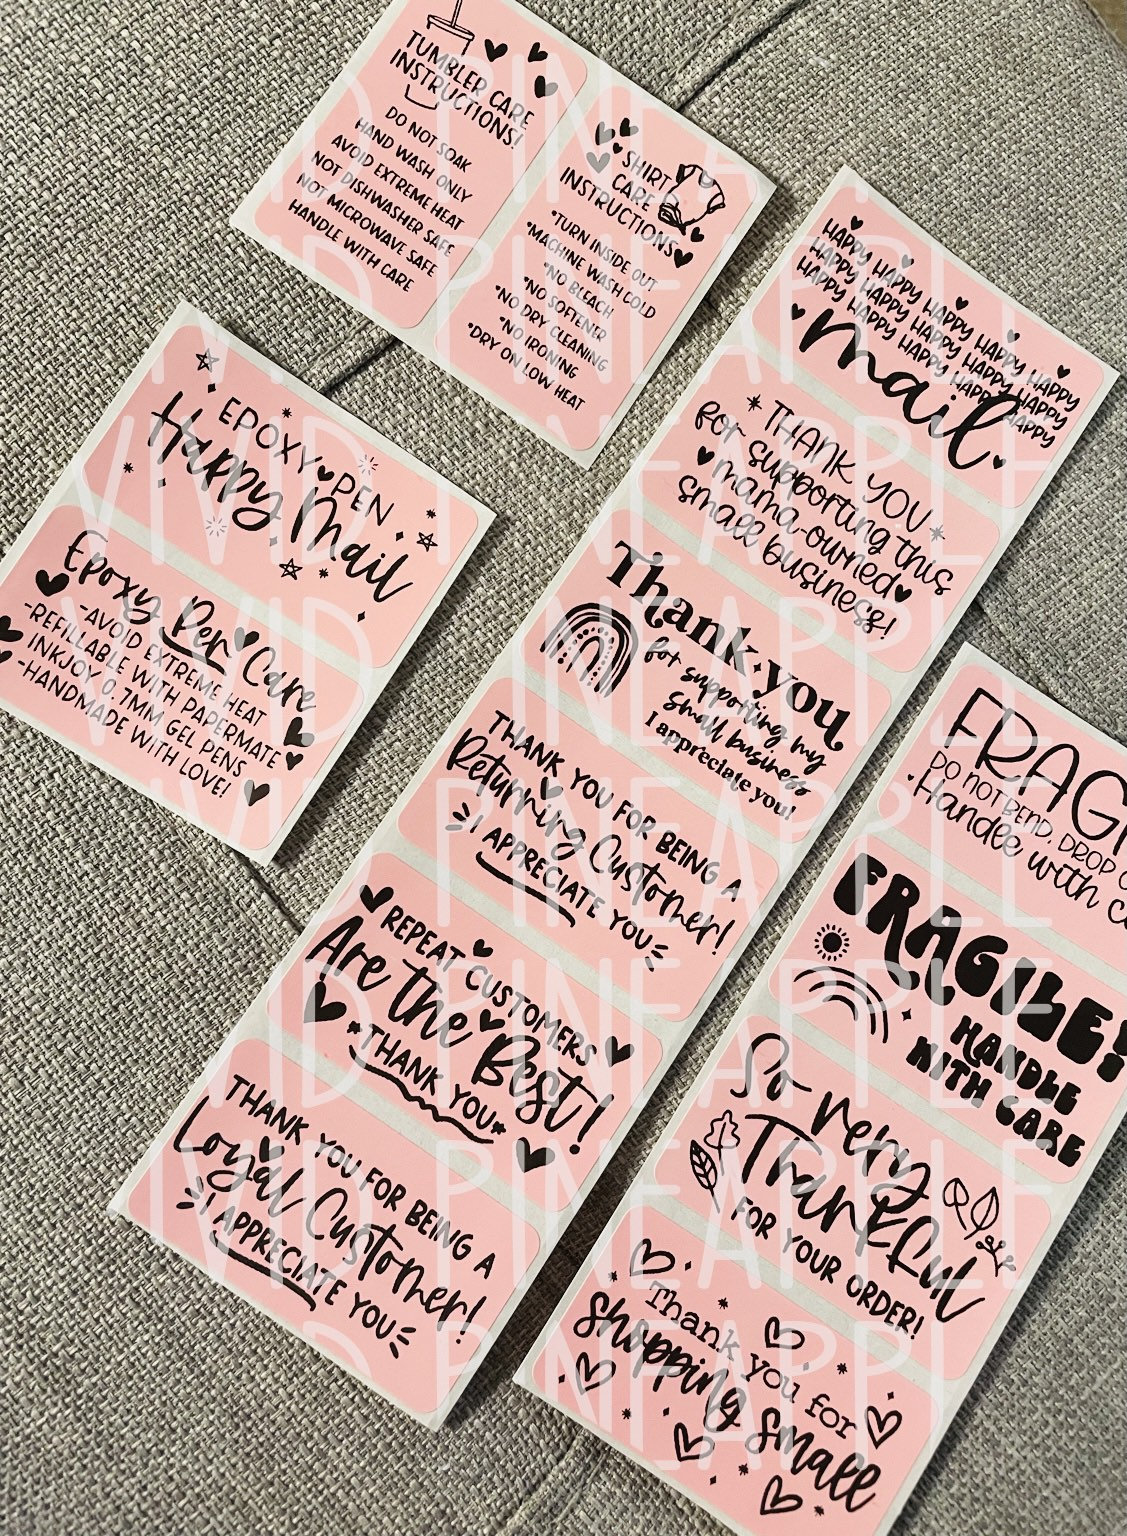 TUMBLER CARE
INSTRUCTIONS!
DO NOT SOAK
HAND WASH ONLY
AVOID EXTREME HEAT
NOT DISHWASHER SAFE
NOT MICROWAVE SAFE
HANDLE WITH CARE
SHIRT
CARE
INSTRUCTIONS
*TURN INSIDE OUT
*MACHINE WASH COLD
*NO BLEACH
*NO SOFTENER
*NO DRY CLEANING
*NO IRONING
*DRY ON LOW HEAT
EPOXY PEN
Happy Mail
Epoxy Pen Care
-AVOID EXTREME HEAT
-REFILLABLE WITH PAPERMATE
INKJOY 0.7MM GEL PENS
-HANDMADE WITH LOVE!
HAPPY HAPPY HAPPY HAPPY HAPPY
HAPPY HAPPY HAPPY HAPPY HAPPY
HAPPY HAPPY HAPPY HAPPY HAPPY
mail
THANK YOU
for supporting this
mama-owned
small business!
Thank you
for supporting my
small business
I appreciate you!
THANK YOU FOR BEING A
Returning Customer!
I APPRECIATE YOU
REPEAT CUSTOMERS
Are the Best!
*THANK YOU*
THANK YOU FOR BEING A
Loyal Customer!
I APPRECIATE YOU
DO NOT BEND, DROP
Handle with
FRAGILE!
HANDLE
WITH CARE
So very
Thankful
FOR YOUR ORDER!
Thank you for
shopping small
VIVID PINEAPPLE
VIVID PINEAPPLE
VIVID PINEAPPLE
VIVID PINEAPPLE
VIVID PINEAPPLE
VIVID PINEAPPLE
VIVID PINEAPPLE
VIVID PINEAPPLE